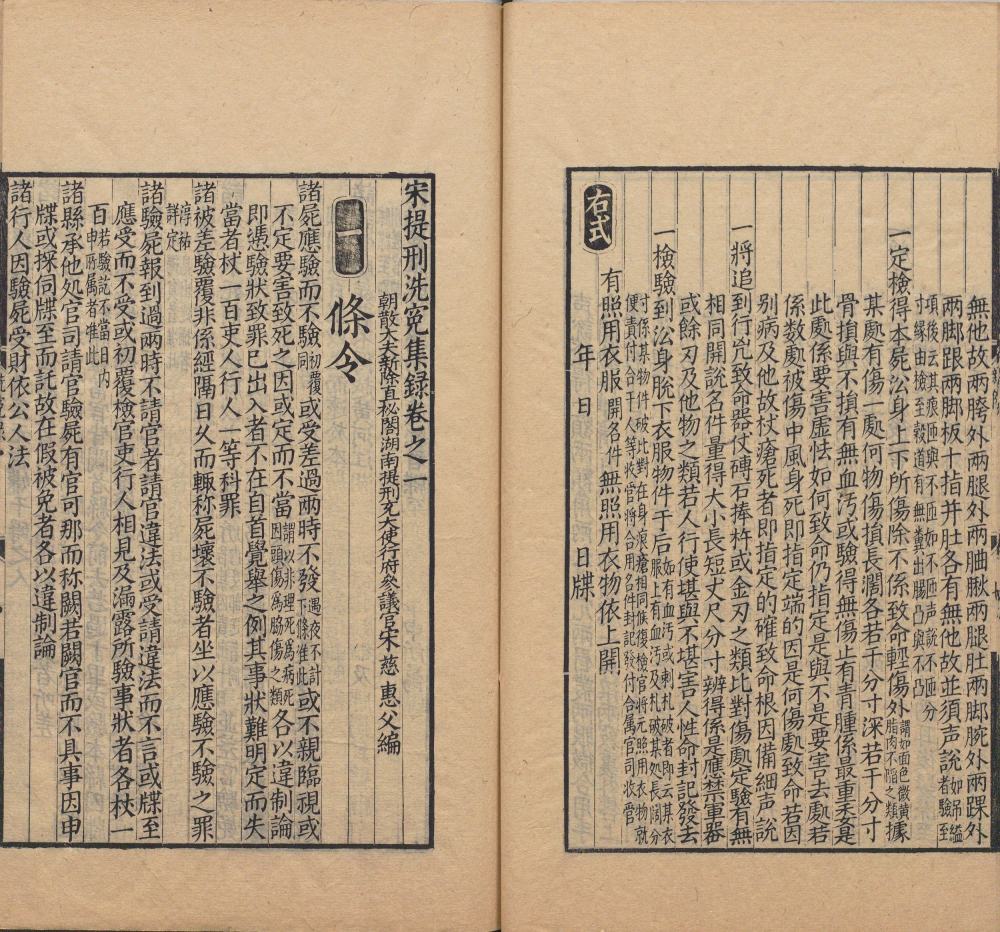 無他故兩臀外兩腿外兩膕膁兩腿肚兩脚腕外兩踝外
兩脚跟兩脚板十指并肚各有無他故並須声說如吊縊者驗至
項後云其痕匝與不匝如不匝声說不匝分
寸縁由撿至穀道有無糞出腸凸與不凸
一定檢得本屍㳂身上下所傷除不係致命輕傷外謂如面色微黄脂肉不陷之類據
某處有傷一處何物傷損長濶各若干分寸深若干分寸
骨損與不損有無血汚或驗得無傷止有青腫係最重委是
此處係要害虚怯如何致命仍指定是與不是要害去處若
係数處被傷中風身死即指定端的因是何傷處致命若因
別病及他故杖瘡死者即指定的確致命根因備細声說
一將追到行兇致命器仗磚石捧杵或金刃之類比對傷處定驗有無
相同開說名件量得大小長短丈尺分寸辨得係是應禁軍器
或餘刃及他物之類若人行使堪與不堪害人性命封記發去
一檢驗到㳂身脫下衣服物件于后如有血汚或剌札破者即云某衣服上有血汚及札破某処長闊分
寸係某物件破比對在身痕瘡相同候復檢官將元照用衣物就
便責付合干人等收管將合用名件封記發付合属官司收管
有照用衣服開各件無照用衣物依上開
年 日 日牒
右式
宋提刑洗冤集録卷之一
朝散大夫新除直秘閣湖南提刑充大使行府參議官宋慈惠父編
一 條令
諸屍應驗而不驗初覆同或受差過兩時不發遇夜不計下條准此或不親臨視或
不定要害致死之因或定而不當謂以非理死為病死因頭傷爲脇傷之類各以違制論
即憑驗狀致罪已出入者不在自首覺舉之例其事狀難明定而失
當者杖一百吏人行人一等科罪
諸被差驗覆非係經隔日久而輙称屍壞不驗者坐以應驗不驗之罪
淳祐詳定
諸驗屍報到過兩時不請官者請官違法或受請違法而不言或牒至
應受而不受或初覆檢官吏行人相見及漏露所驗事狀者各杖一
百若驗説不當日内申所属者准此
諸縣承他処官司請官驗屍有官可那而称闕若闕官而不具事因申
牒或探伺牒至而託故在假被免者各以違制論
諸行人因驗屍受財依公人法